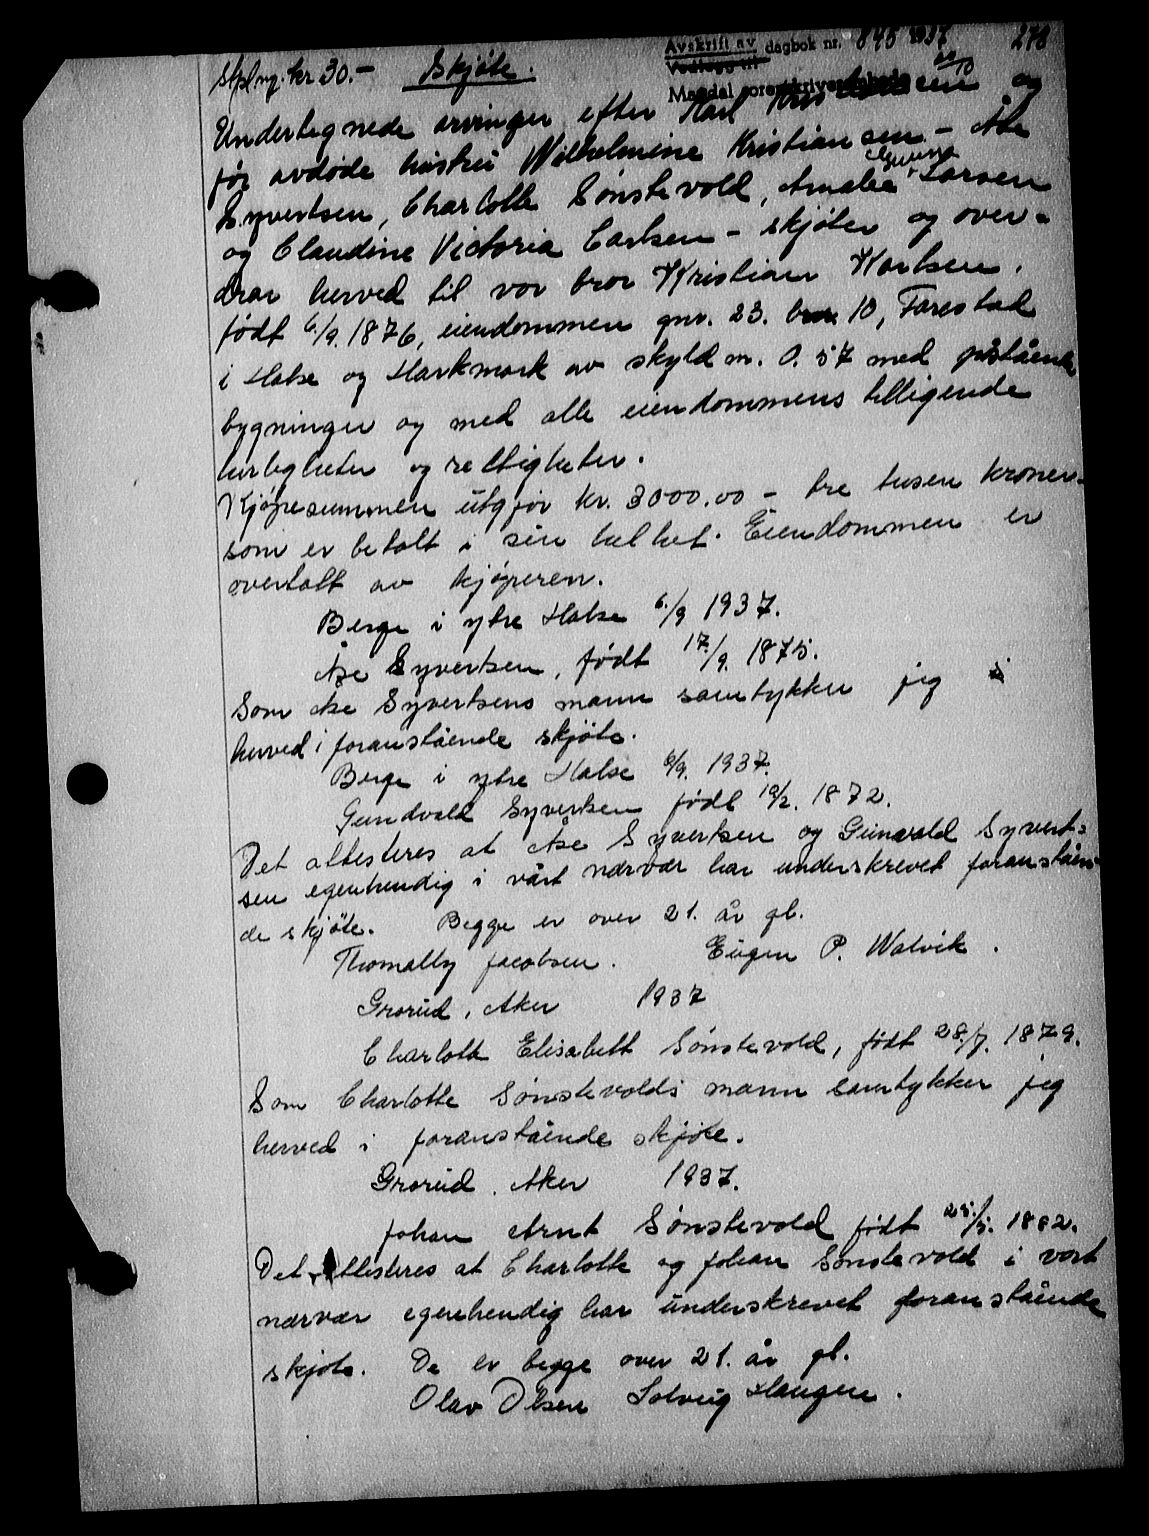 Avskrift av dagbok nr. 845 1937 278
Vedlegg til
Mandal sorenskriverembede
Stplmg. kr 30.- Skjøte.
Undertegnede arvinger efter Karl og
før avdøde hustru Wilhelmine Kristiansen - Åse
Syvertsen, Charlotte Sønstevold, Amalie Gurine Larsen
og Claudine Victoria Carlsen - skjøter og over-
drar herved til vor bror Kristian Karlsen,
født 6/9. 1876, eiendommen gnr. 23. bnr. 10, Farestad
i Halse og Harkmark av skyld m. 0.57 med påstående
bygninger og med alle eiendommens tilligende
herligheter og rettigheter.
Kjøpesummen utgjør kr. 3000.00 - tre tusen kroner -
som er betalt i sin helhet. Eiendommen er
overtatt av kjøperen.
Berge i ytre Halse 6/9 1937.
Åse Syvertsen, født 17/9. 1875.
Som Åse Syvertsens mann samtykker jeg
herved i foranstående skjøte.
Berge i ytre Halse 6/9. 1937.
Gundvald Syvertsen født 10/2. 1872.
Det attesteres at Åse Syvertsen og Gunvald Syvert-
sen egenhendig i vårt nærvær har underskrevet foranståen-
de skjøte. Begge er over 21. år gl.
Thomally Jacobsen. Eugen P. Walvik.
Grorud, Aker 1937
Charlotte Elisabett Sønstevold, født 28/7. 1879.
Som Charlotte Sønstevolds mann samtykker jeg
herved i foranstående skjøte.
Grorud, Aker 1937.
Johan Arnt Sønstevold født 25/5. 1882.
Det attesteres at Charlotte og Johan Sønstevold i vort
nærvær egenhendig har underskrevet foranstående
skjøte. De er begge over 21. år gl.
Olav Olsen Solveig Haugen.